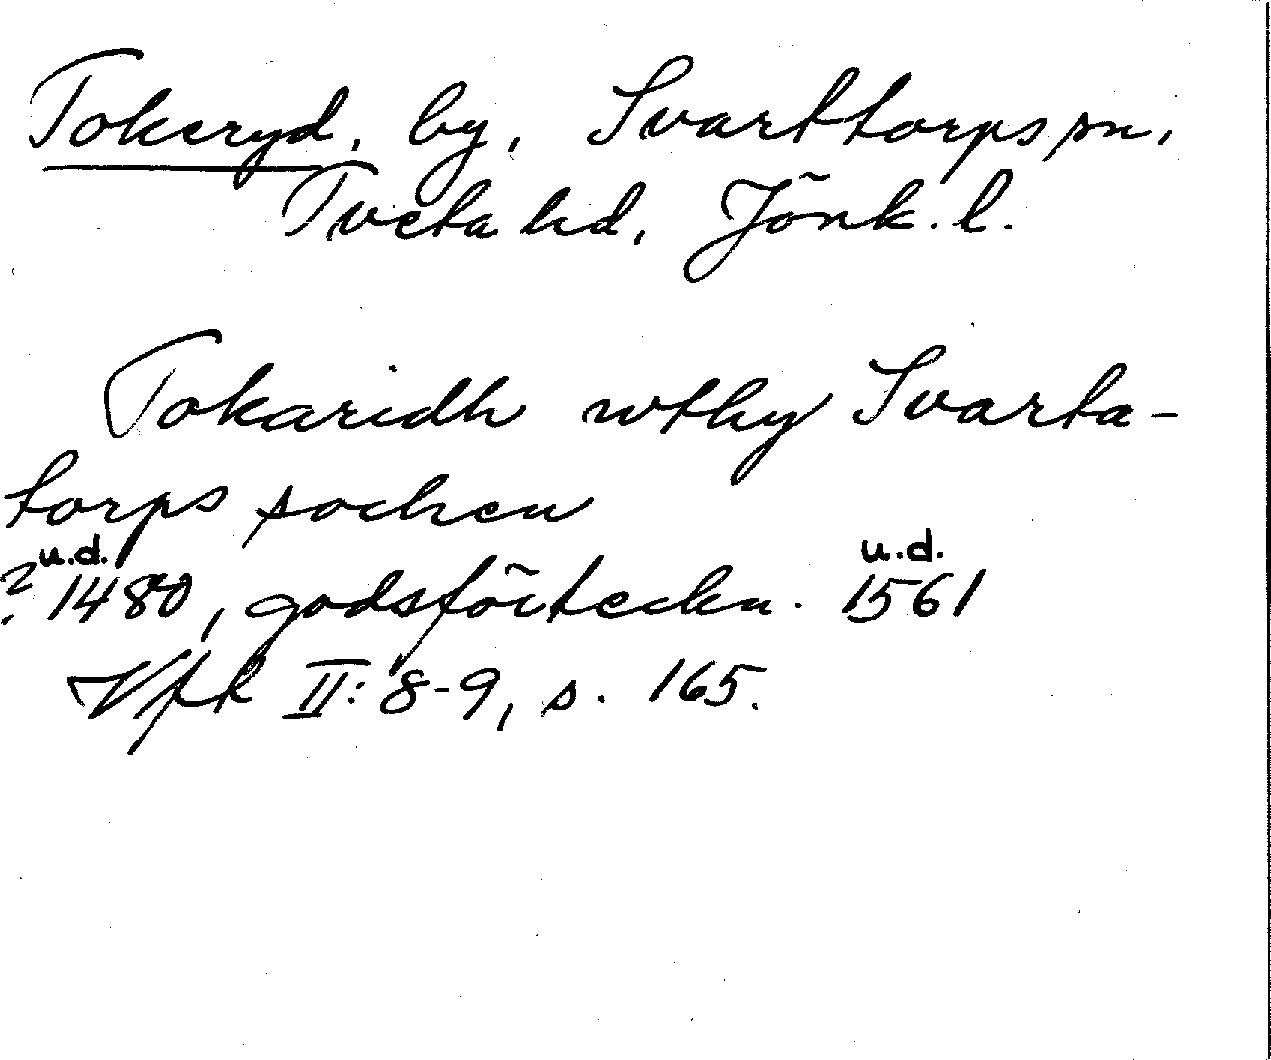 Tokeryd, by, Svarttorps sn,
Tveta hd, Jönk. l.
Tokaridh wthy Svarta-
torps sochen
u.d. u.d.
? 1480, godsförteckn. 1561
Vfk II: 8-9, s. 165.